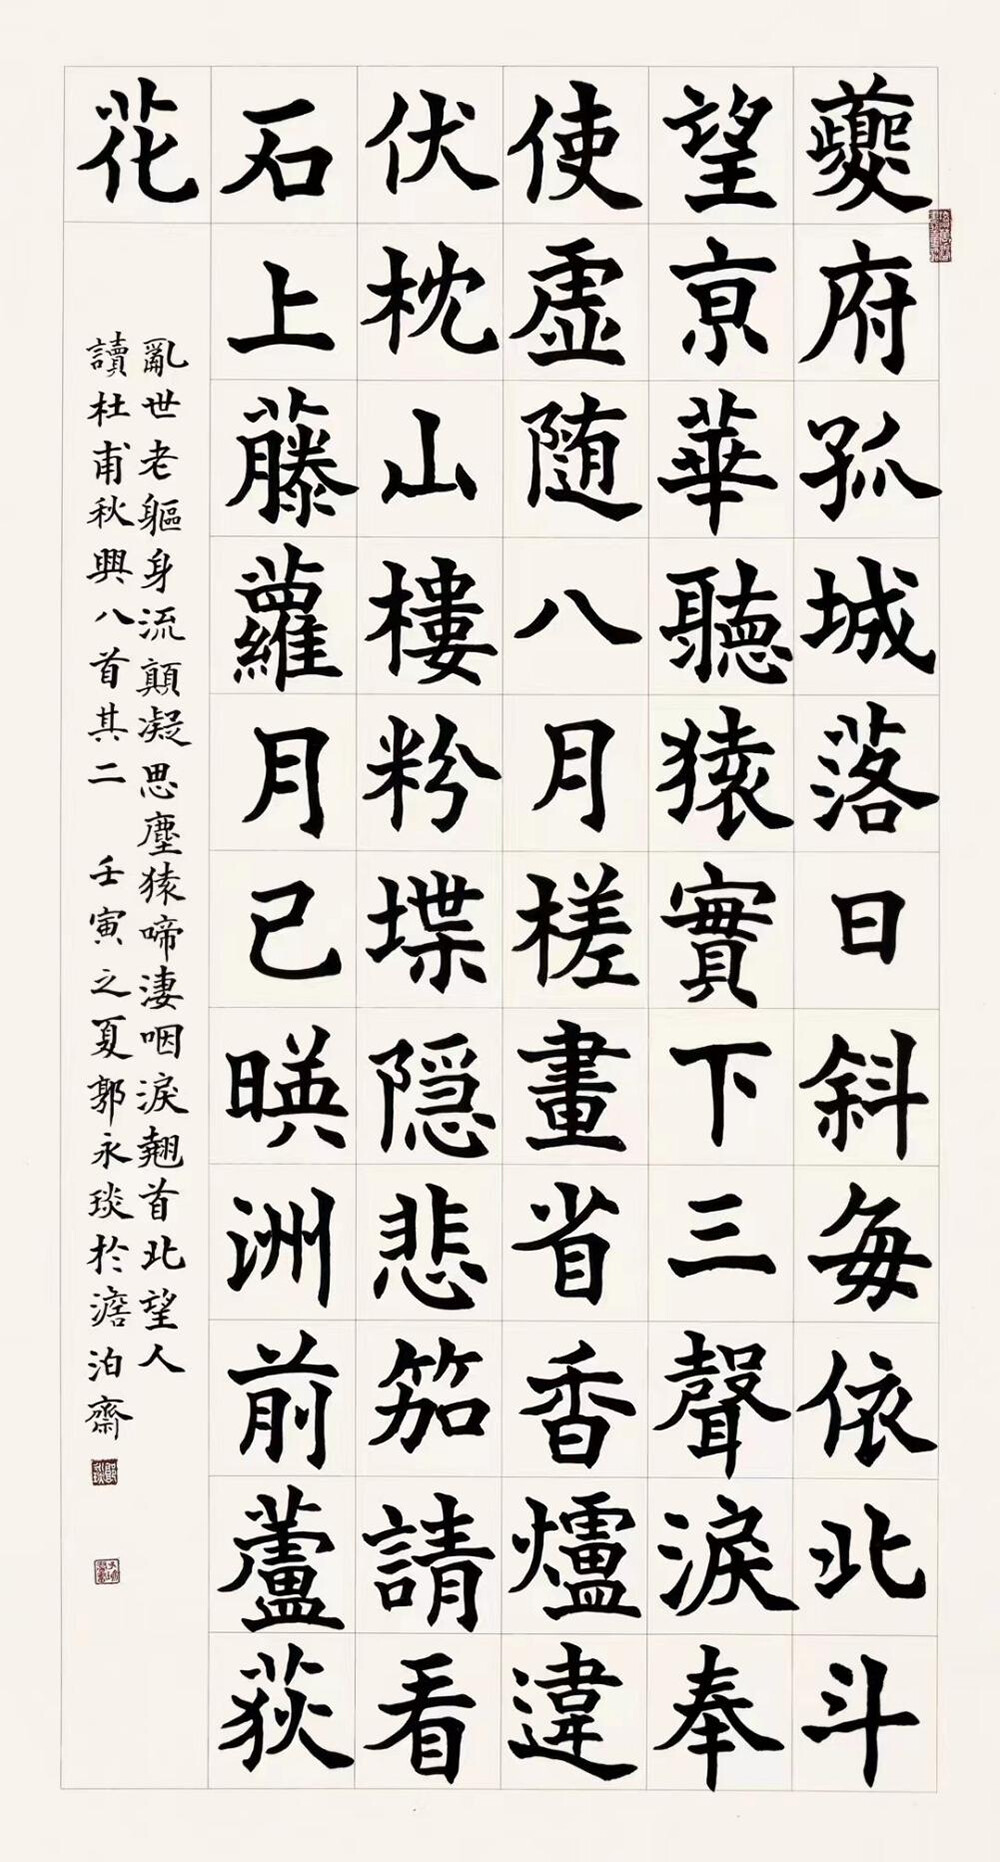 夔府孤城落日斜每依北斗
望亰華聽猿實下三聲淚奉
使虛随八月槎畫省香爐違
伏枕山樓粉堞隠悲笳請看
石上藤蘿月己暎洲前蘆荻
花
亂世老軀身流顛凝思塵猿啼淒咽淚翹首北望人
讀杜甫秋興八首其二 壬寅之夏郭永琰於澹泊齋